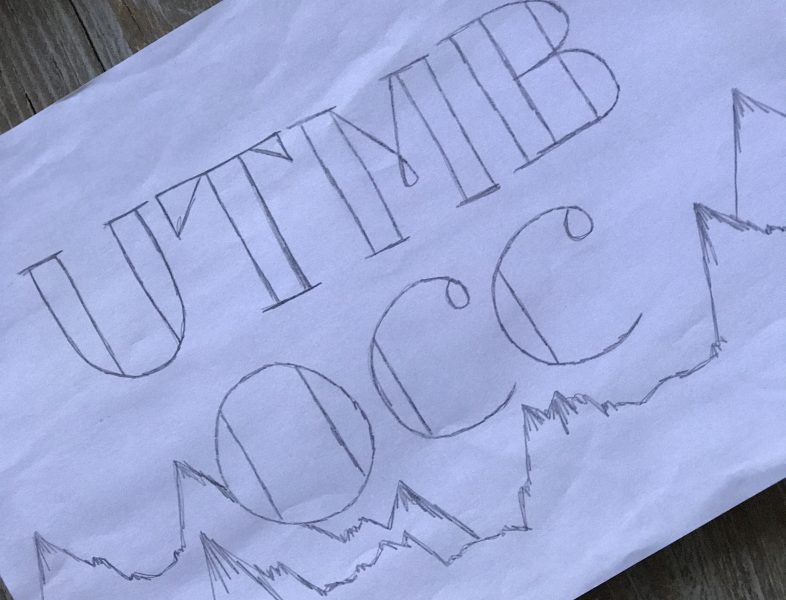 UTMB
OCC